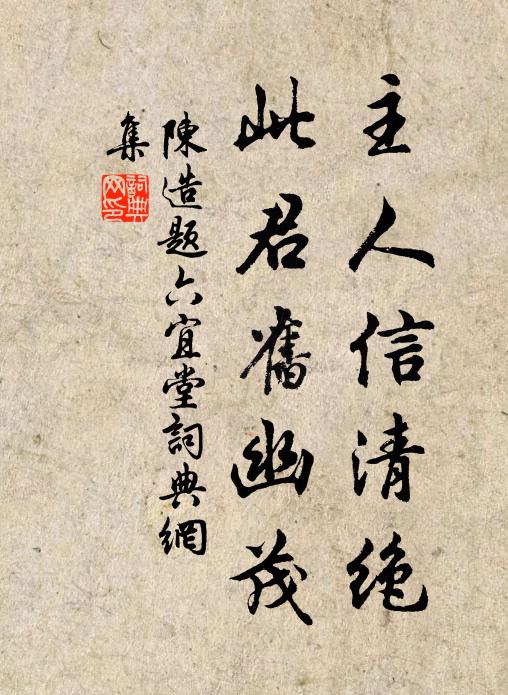 主人信清絶
此君舊幽茂
陳造題六宜堂詞典網
集
詞典
网印